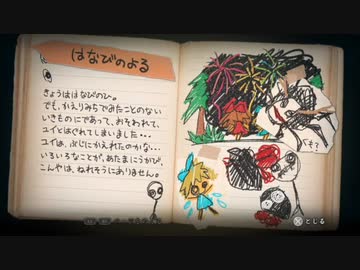 はなびのよる
きょうははなびのひ。
でも、かえりみちでみたことのない
いきものにであって、おそわれて、
ユイとはぐれてしまいました・・・
ユイは、ぶじにかえれたのかな…
いろいろなことが、あたまにうかび、
こんやは、ねれそうにありません。
とじる